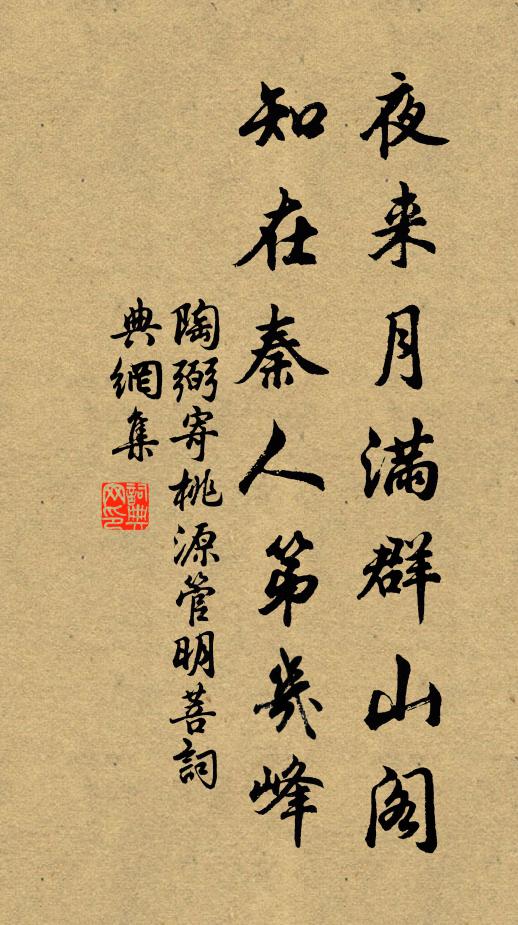 夜来月满群山阁
知在秦人第幾峰
陶弼寄桃源管明菩詞
典網集
詞典
网印